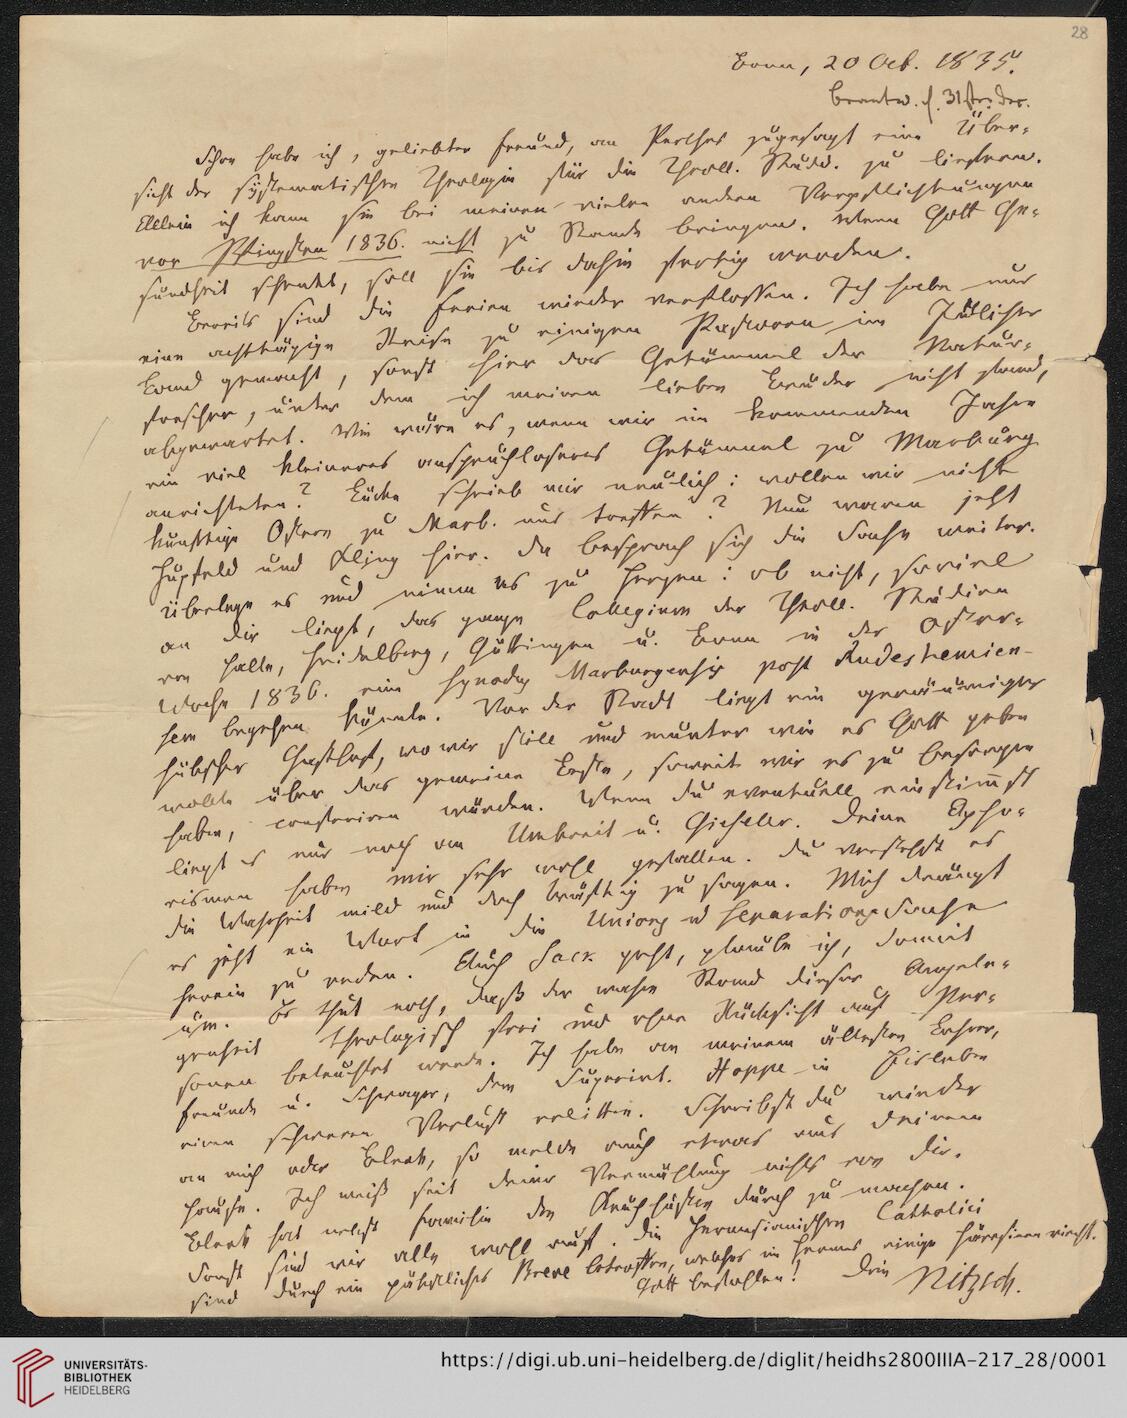 28
Bonn, 20 Oct. 1835.
beantw. d. 31
Schon habe ich, geliebter Freund, an Perthes zugesagt eine Über-
sicht der systematischen Theologie für die Theoll. Studd. zu liefern.
Allein ich kann sie bei meinen vielen andern Verpflichtungen
vor Pfingsten 1836. nicht zu Stande bringen. Wenn Gott Ge-
sundheit schenkt, soll sie bis dahin fertig werden.
Bereits sind die Ferien wieder verflossen. Ich habe nur
eine achttägige Reise zu einigen Pastoren im Jülicher
Land gemacht, sonst hier das Getümmel der Natur-
forscher, unter dem ich meinen lieben Bruder nicht fand,
abgewartet. Wie wäre es, wenn wir im kommenden Jahre
ein viel kleineres anspruchloseres Getümmel zu Marburg
anrichteten? Lücke schrieb mir neulich: wollen wir nicht
künftige Ostern zu Marb. uns treffen? Nun waren jetzt
Hupfeld und Kling hier. Da besprach sich die Sache weiter.
Überlege es und nimm es zu Herzen: ob nicht, soviel
an dir liegt, das ganze Collegium der Theoll. Studien
von Halle, Heidelberg, Göttingen u. Bonn in der Oster-
Woche 1836. eine Synodus Marburgensis post Rudeshemien-
sem begehen könnte. Vor der Stadt liegt ein geräumiger
hübscher Gasthof, wo wir still und munter wie es Gott geben
wollte über das gemeine Beste, soweit wir es zu besorgen
haben, conferiren würden. Wenn du eventuell einstimmst
liegt es nur noch an Umbreit u. Gieseler. Deine Apho-
rismen haben mir sehr wohl gefallen. Du verstehst es
die Wahrheit mild und doch kräftig zu sagen. Mich drängt
es jetzt ein Wort in die Unions u Separations-Sache
herein zu reden. Auch Sack geht, glaube ich, damit
um. Es thut noth, daß der wahre Stand dieser Angele-
genheit theologisch frei und ohne Rücksicht auf Per-
sonen beleuchtet werde. Ich habe an meinem ältesten Lehrer,
Freunde u. Schwager, dem Superint. Hoppe in Eisleben
einen schweren Verlust erlitten. Schreibst du wieder
an mich oder Bleek, so melde auch etwas aus deinem
Hause. Ich weiß seit deiner Vermählung nichts von dir.
Bleek hat nebst Familie den Keuchhusten durch zu machen.
Sonst sind wir alle wohl auf. Die Hermesianischen Catholici
sind durch ein päbstliches Breve betroffen, welches im Hermes einige Häresieen riecht.
Gott befohlen! Dein Nitzsch.
UNIVERSITÄTS-
BIBLIOTHEK
HEIDELBERG
https://digi.ub.uni-heidelberg.de/diglit/heidhs2800IIIA-217_28/0001